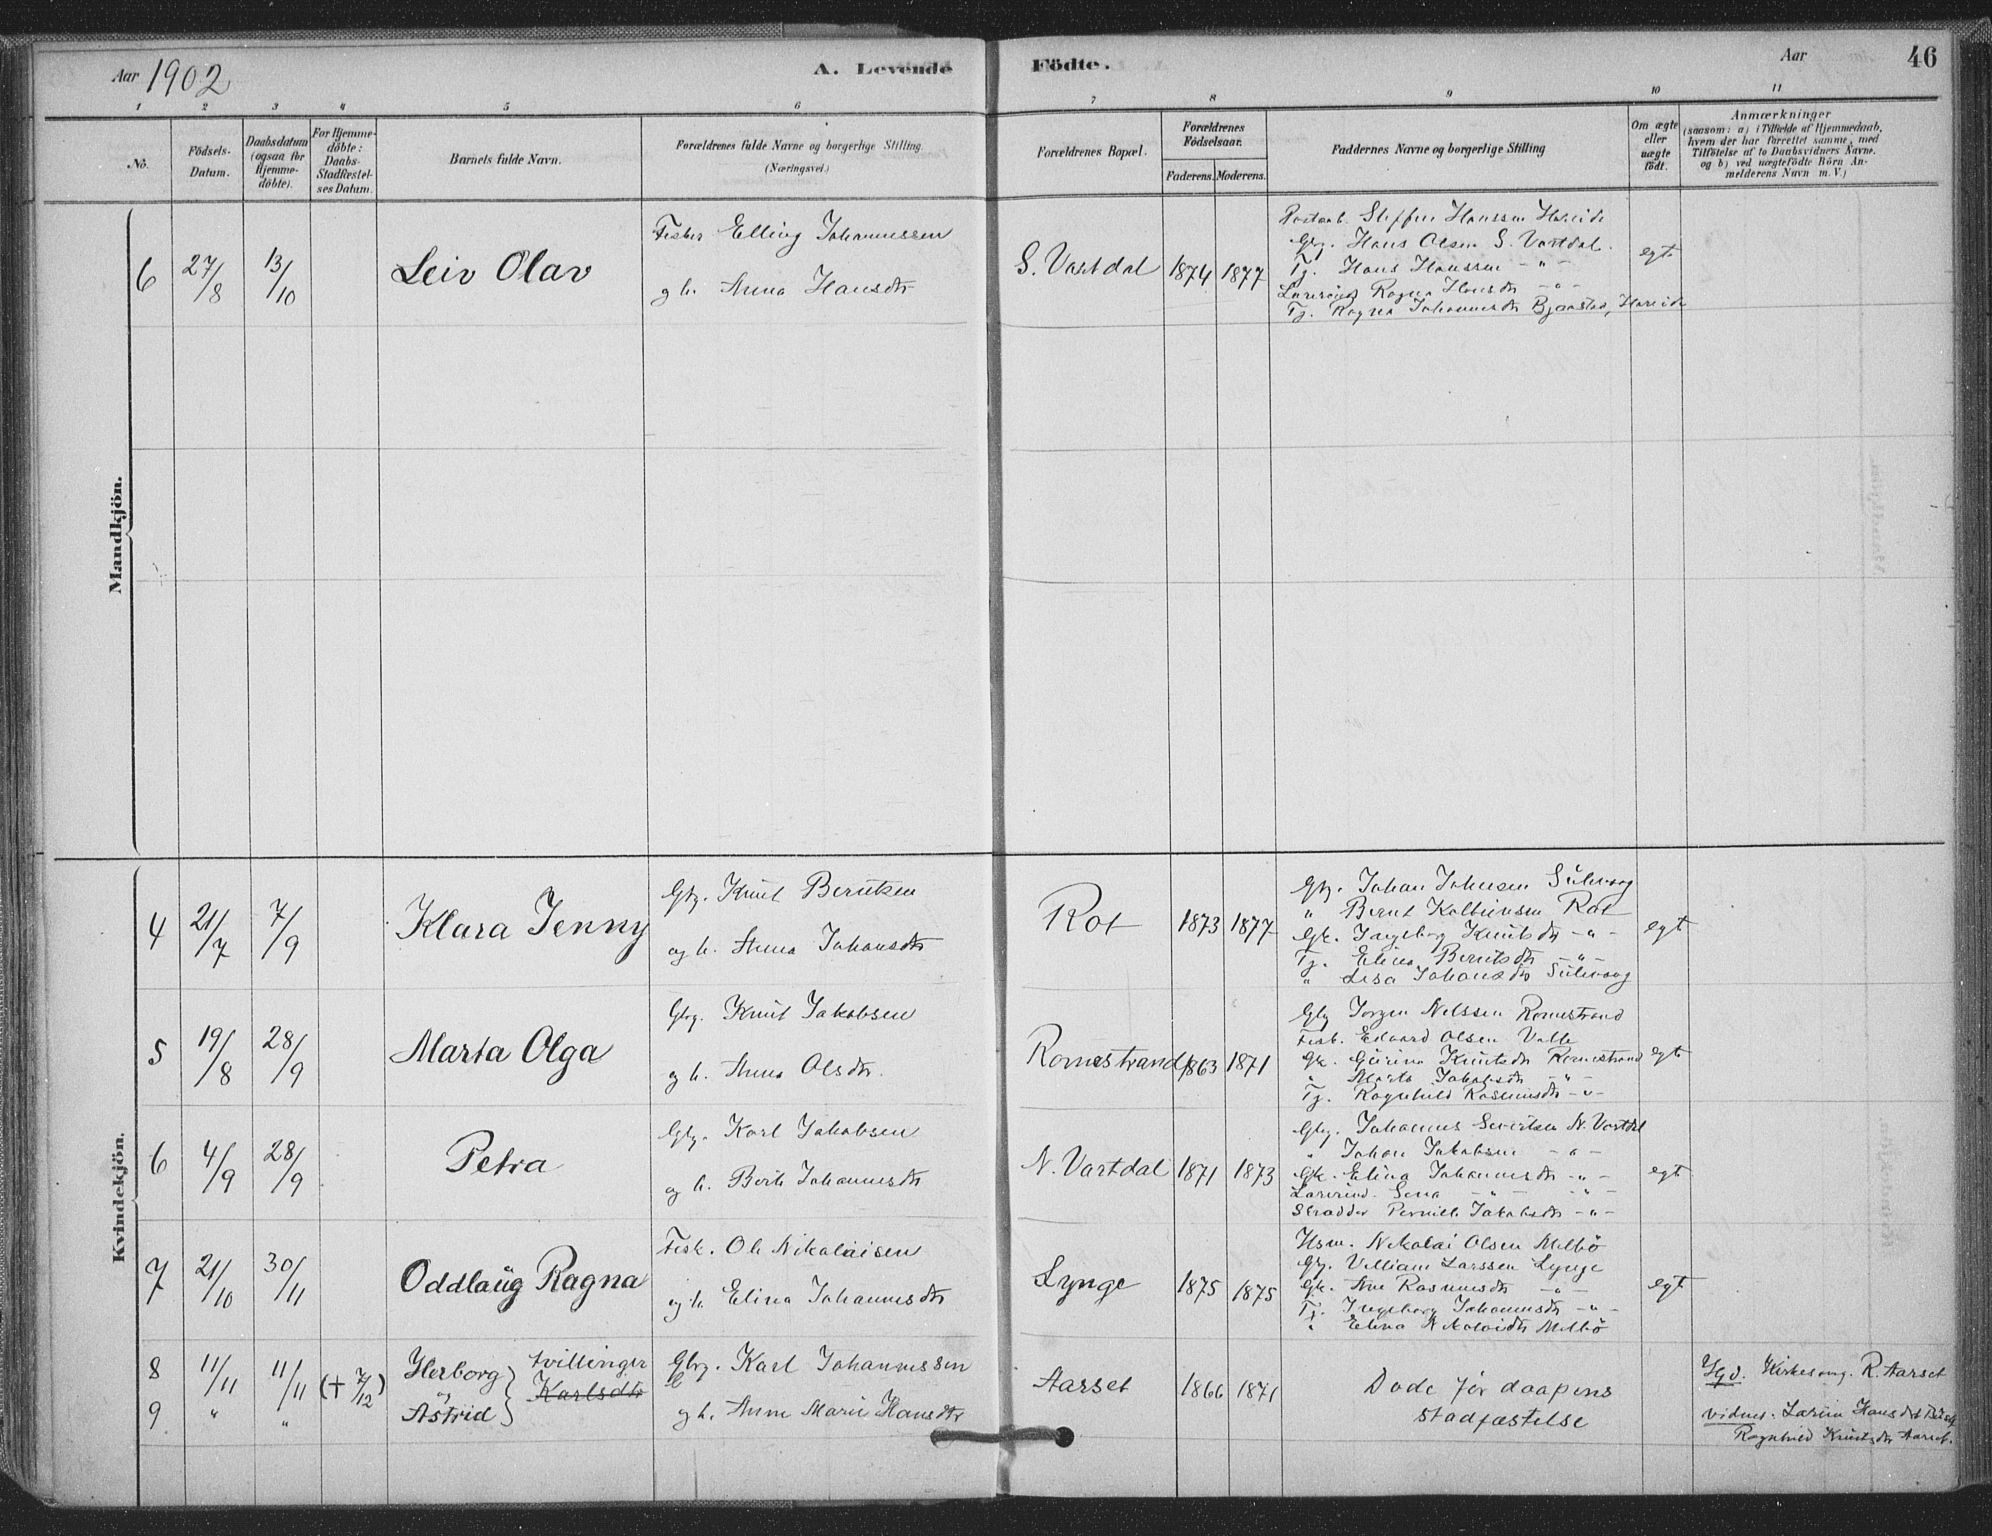 Aar 1902
A. Levende Födte.
Aar
46
1 2 3 4 5 6 7 8 9 10 11
No.
Födsels-
Datum.
Daabsdatum
(ogsaa for
Hjemme-
döbte).
For Hjemme-
döbte:
Daabs-
Stadfæstel-
ses Datum.
Barnets fulde Navn.
Forældrenes fulde Navne og borgerlige Stilling.
(Næringsvei.)
Forældrenes Bopæl.
Forældrenes
Födselsaar.
Faderens. Moderens.
Faddernes Navne og borgerlige Stilling
Om ægte
eller
uægte
födt.
Anmærkninger
(saasom: a) i Tilfælde af Hjemmedaab,
hvem der har forrettet samme, med
Tilföielse af to Daabsvidners Navne.
og b) ved uægtefödte Börn An-
melderens Navn m. V.)
Mandkjön.
6 27/8 13/10 Leiv Olav
Fisker Elling Johannessen
og h. Anna Hansdtr
S. Vartdal 1874 1877
Steffen Hanssen Hareide
Gbr. Hans Olsen S. Vartdal.
Tj. Hans Hanssen -"-
Ragna Hansdtr -"-
Tj. Ragna Johannesdtr Bjaastad, Hareide
egte
Kvindekjön.
4 21/7 7/9 Klara Jenny
Gbr. Knut Berntsen
og h. Anna Johansdtr
Rot 1873 1877
Gbr. Johan Johnsen Sülevaag
" Bernt Kolbeinsen Rot
Gk. Ingeborg Knutsdtr -"-
Tj. Elina Berntsdtr -"-
" Lesa Johansdtr Sülevaag
egt
5 19/8 28/9 Marta Olga
Gbr. Knut Jakobsen
og h. Anna Olsdtr.
Romestrand 1863 1871
Gbr Jørgen Nilssen Romestrand
Fisk. Edvard Olsen Valle
Gk. Gürina Knutsdtr Romestrand
" Marta Jakobsdtr -"-
Tj. Ragnhild Rasmusdtr -"-
egt
6 4/9 28/9 Petra
Gbr. Karl Jakobsen
og h. Berte Johannesdtr
N. Vartdal 1871 1873
Gbr. Johannes Sivertsen N. Vartdal
" Johan Jakobsen -"-
Gk. Elina Johannesdtr -"-
Sena -"- -"-
Pernille Jakobsdtr -"-
egt
7 21/10 30/11 Oddlaüg Ragna
Fisk. Ole Nikolaisen
og h. Elina Johannesdtr
Lynge 1875 1875
Hsm. Nikolai Olsen Melbö
Gbr. Villiam Larssen Lynge
Gk. Ane Rasmusdtr -"-
Tj. Ingeborg Johannesdtr -"-
" Elina Nikolaidtr Melbö
egt
8 11/11 11/11 (+ 7/12) Herborg tvillinger
og Karlsdtr
9 " " Astrid
Gbr. Karl Johannessen
og h. Anne Marie Hansdtr
Aarset 1866 1871
Døde før daapens
stadfæstelse
Hjd. Kirkesang. R. Aarset
vidner. Larine Hansdtr
Ragnhild Knutsdtr Aarset.